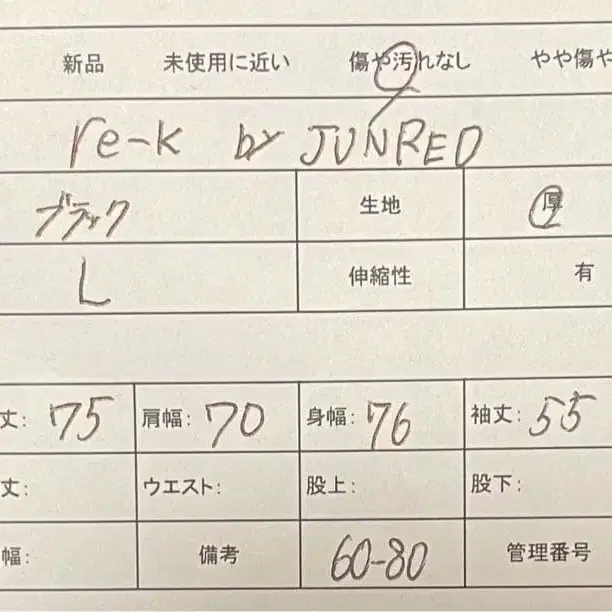 新品 未使用に近い 傷や汚れなし やや傷や
re-k by JUNRED
ブラック 生地 厚
L 伸縮性 有
丈: 75 肩幅: 70 身幅: 76 袖丈: 55
丈: ウエスト: 股上: 股下:
幅: 備考 60-80 管理番号